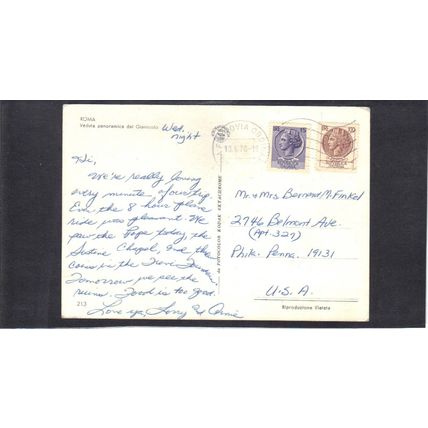 ROMA
Veduta panoramica dal Gianicolo
Wed.
night
Hi,
We're really loving
every minute of our trip.
Even the 8 hour plane
ride was pleasant. We
saw the Pope today, the
Sistine Chapel, and threw
coins in the Trevi Fountain.
Tomorrow we see the
ruins. Food is too good.
Love ya,
213
da FOTOCOLOR KODAK EKTACHROME
Mr. & Mrs Bernard M. Finkel
2746 Belmont Ave.
(Apt. 327)
Phila. Penna. 19131
U.S.A.
Riproduzione Vietata